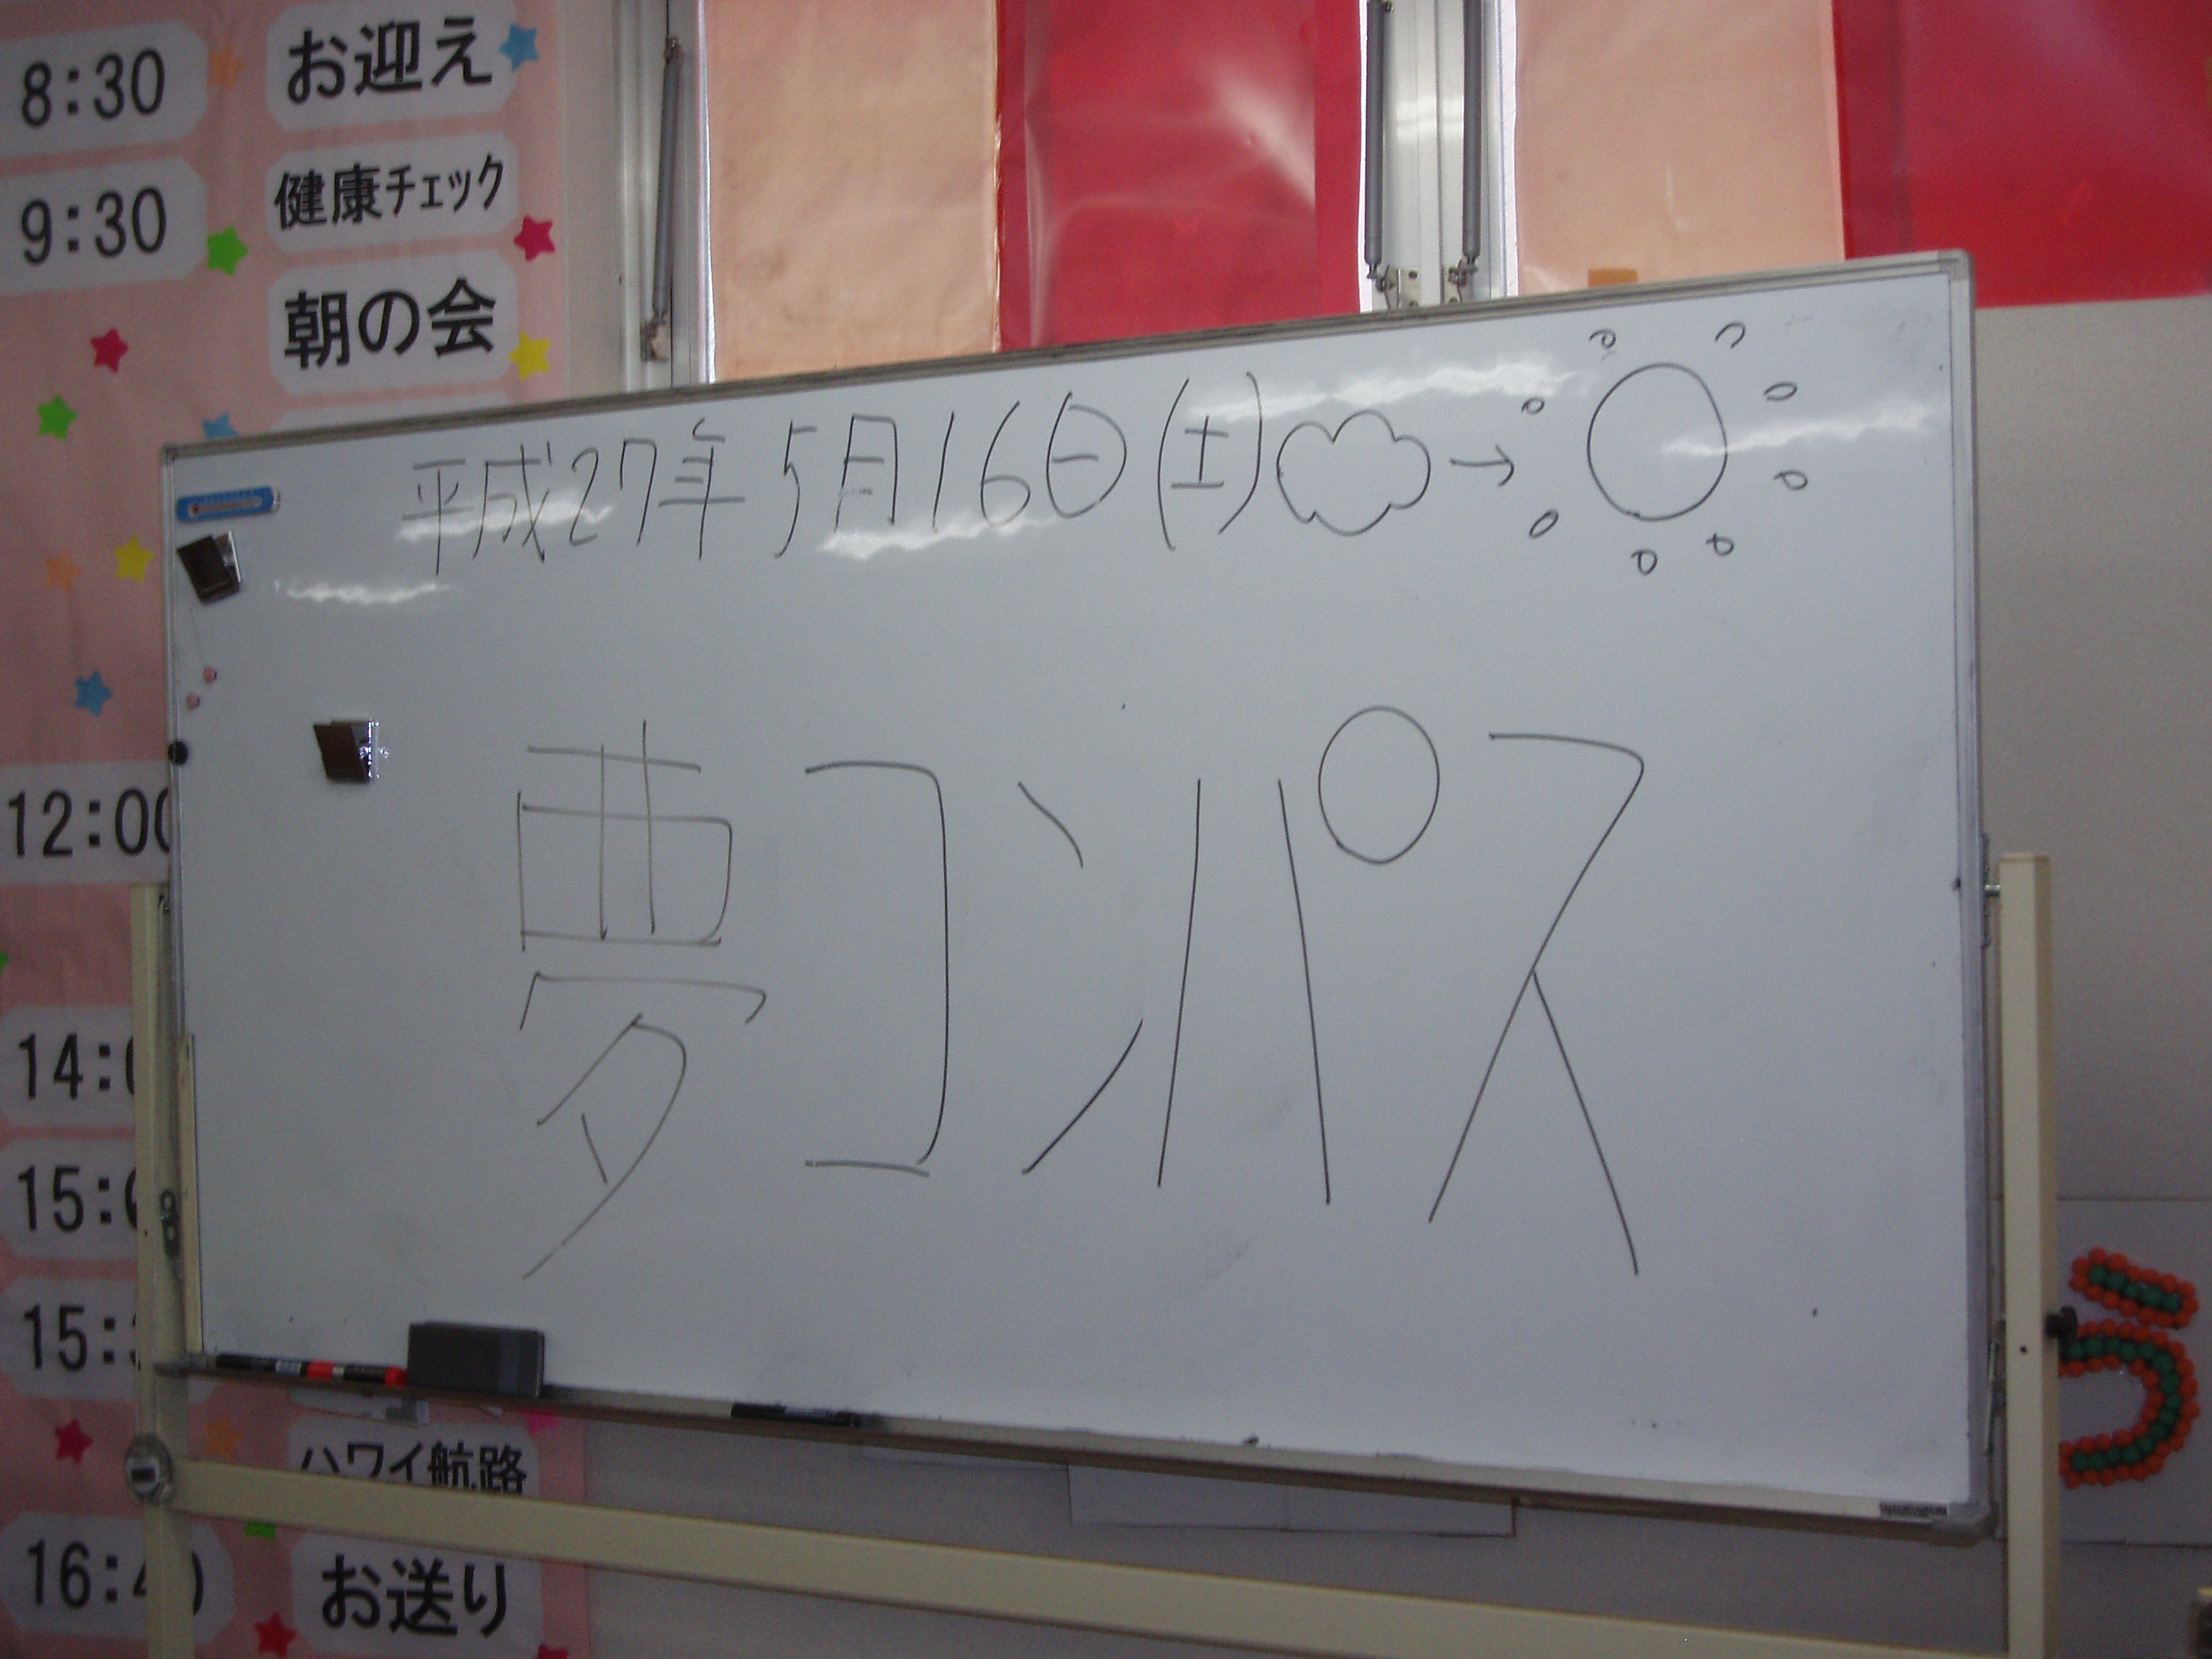 8:30 お迎え
9:30 健康チェック
朝の会
平成27年5月16日(土)
夢コンパス
12:00
14:
15:
15:
ハワイ航路
16:40 お送り